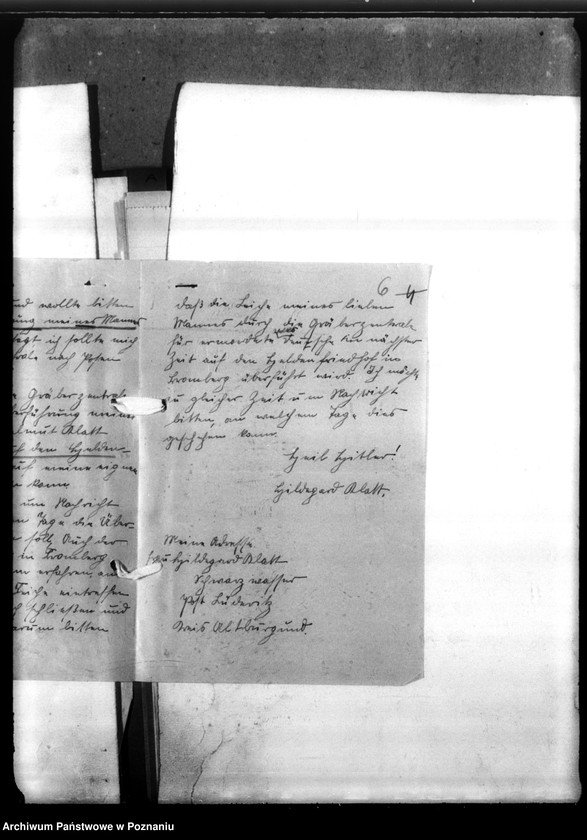 und wollte bitten
ung meines Mannes
sagt ich sollte mich
trale nach Posen
Gräberzentrale
berführung meines
lmut Klatt
f den Helden-
auf meine eigne
n kann.
um Nachricht
n Tage die Über-
n soll. Auch der
in Bromberg
m erfahren, an
Leiche eintreffen
h schließen und
erum bitten
6 4
daß die Leiche meines lieben
Mannes durch die Gräberzentrale
für ermordete Deutsche in nächster
Zeit auf den Heldenfriedhof in
Bromberg überführt wird. Ich möchte
zu gleicher Zeit um Nachricht
bitten, an welchem Tage dies
geschehen kann.
Heil Hitler!
Hildegard Klatt.
Meine Adresse
Frau Hildegard Klatt
Schwarzwasser
Post Lüderitz
Kreis Altburgund.
Archiwum Państwowe w Poznaniu